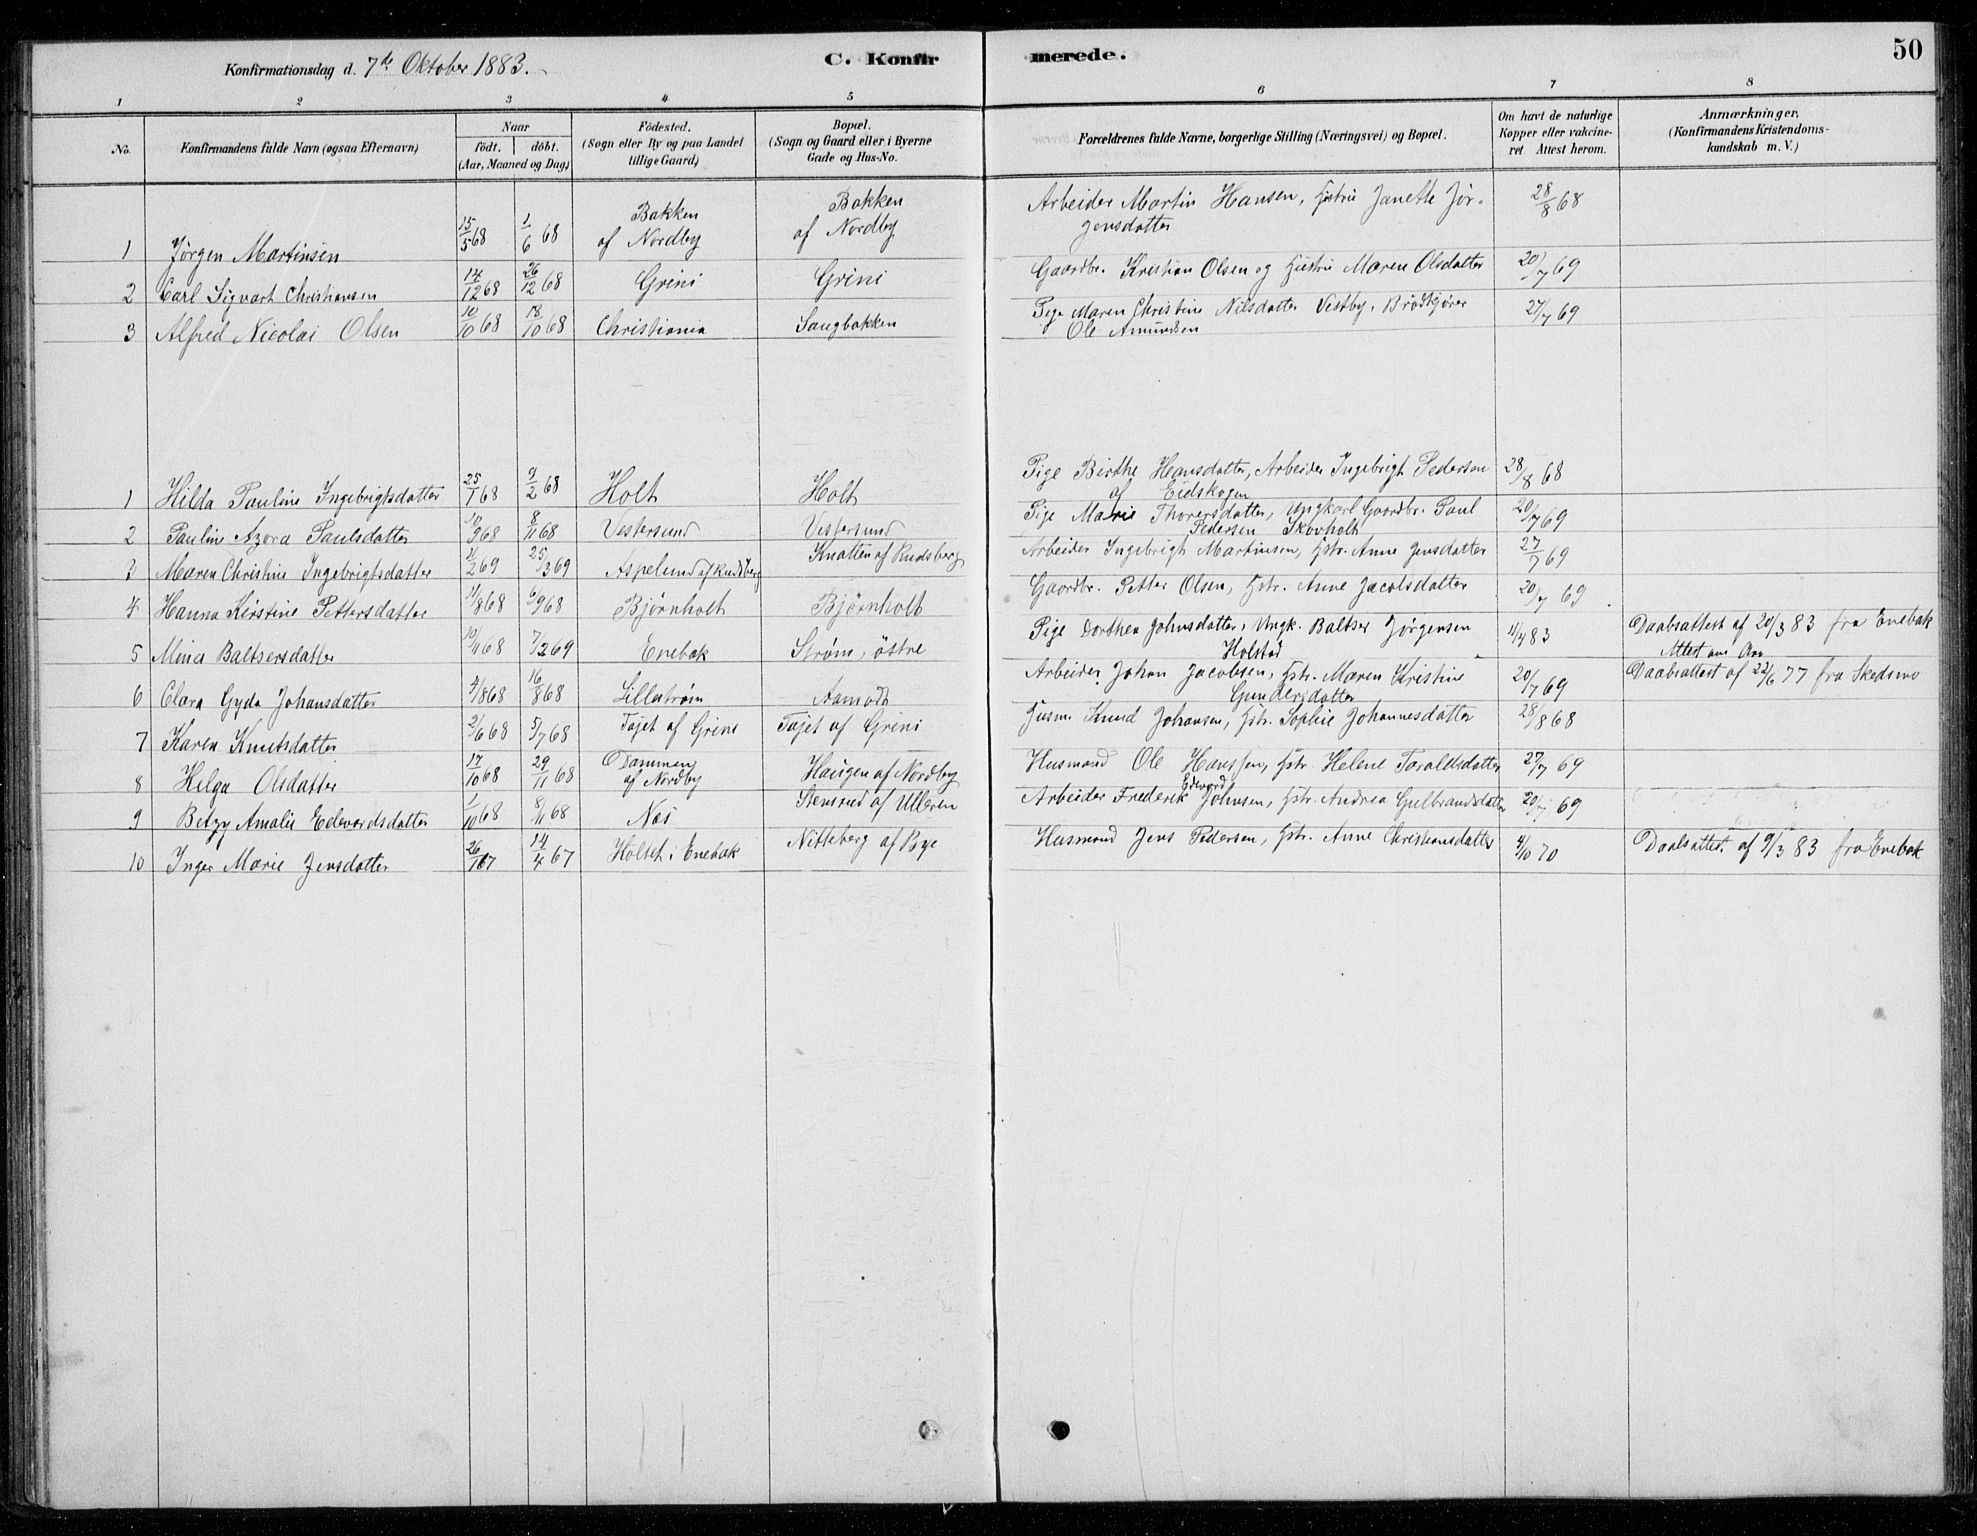 Konfirmationsdag d. 7de Oktober 1883.
C. Konfirmerede.
50
1 2 3 4 5 6 7 8
No.
Konfirmandens fulde Navn (ogsaa Efternavn)
Naar
födt. döbt.
(Aar, Maaned og Dag)
Födested.
(Sogn eller By og paa Landet
tillige Gaard)
Bopæl.
(Sogn og Gaard eller i Byerne
Gade og Hus-No.
Forældrenes fulde Navne, borgerlige Stilling (Næringsvei) og Bopæl.
Om havt de naturlige
Kopper eller vakcine-
ret Attest herom.
Anmærkninger.
(Konfirmandens Kristendoms-
kundskab m. V.)
1 Jørgen Martinsen 15/5 68 1/6 68 Bakken af Nordby Bakken af Nordby Arbeider Martin Hansen, Hustru Janette Jør- 28/8 68
gensdatter
2 Carl Sigvart Christiansen 14/12 68 26/12 68 Grini Grini Gaardbr. Kristian Olsen og Hustru Maren Olsdatter 20/7 69
3 Alfred Nicolai Olsen 10/10 68 18/10 68 Christiania Saugbakken Pige Maren Christine Nilsdatter Vestby, Brødkjører 27/7 69
Ole Amundsen
1 Hilda Pauline Ingebrigtsdatter 25/1 68 9/2 68 Holt Holt Pige Birthe Hansdatter, Arbeider Ingebrigt Pedersen 28/8 68
af Eidskogen
2 Pauline Azora Paulsdatter 10/9 68 8/11 68 Vestersund Vestersund Pige Marie Thorersdatter, Ungkarl Gaardbr. Paul 20/7 69
Pedersen Skovholt
3 Maren Christine Ingebrigtsdatter 11/2 69 25/3 69 Aspelund af Rudsberg Knatten af Rudsberg Arbeider Ingebrigt Martinsen, Hstr. Anne Jensdatter 27/7 69
4 Hanna Kirstine Pettersdatter 11/8 68 6/9 68 Bjørnholt Bjørnholt Gaardbr. Petter Olsen, Hstr. Anne Jacobsdatter 20/7 69
5 Mina Baltsersdatter 10/11 68 7/2 69 Enebak Strøm, östre Pige Dorthea Johnsdatter, Ungk. Baltser Jørgensen 11/4 83 Daabsattest af 20/3 83 fra Enebak
Holstad Attest om
6 Clara Gyda Johansdatter 4/8 68 16/8 68 Lillestrøm Aamodt Arbeider Johan Jacobsen, Hstr. Maren Kristine 20/7 69 Daabsattest af 22/6 77 fra Skedsmo
Gundersdatter
7 Karen Knutsdatter 2/6 68 5/7 68 Tajet af Grini Tajet af Grini Husm. Knud Johansen, Hstr. Sophie Johannesdatter 28/8 68
8 Helga Olsdatter 17/10 68 29/11 68 Dammen af Nordby Haugen af Nordby Husmand Ole Hanssen, Hstr. Helene Taraldsdatter 27/7 69
9 Betzy Amalie Edevardsdatter 1/10 68 8/11 68 Nøs Stensrud af Ulleren Arbeider Frederik Edevard Johnsen, Hstr. Andrea Gulbrandsdatter 20/7 69
10 Inger Marie Jensdatter 26/1 67 14/4 67 Holtet i Enebak Nitteberg af Rye Husmand Jens Pedersen, Hstr. Anne Christiansdatter 4/10 70 Daabsattest af 9/3 83 fra Enebak